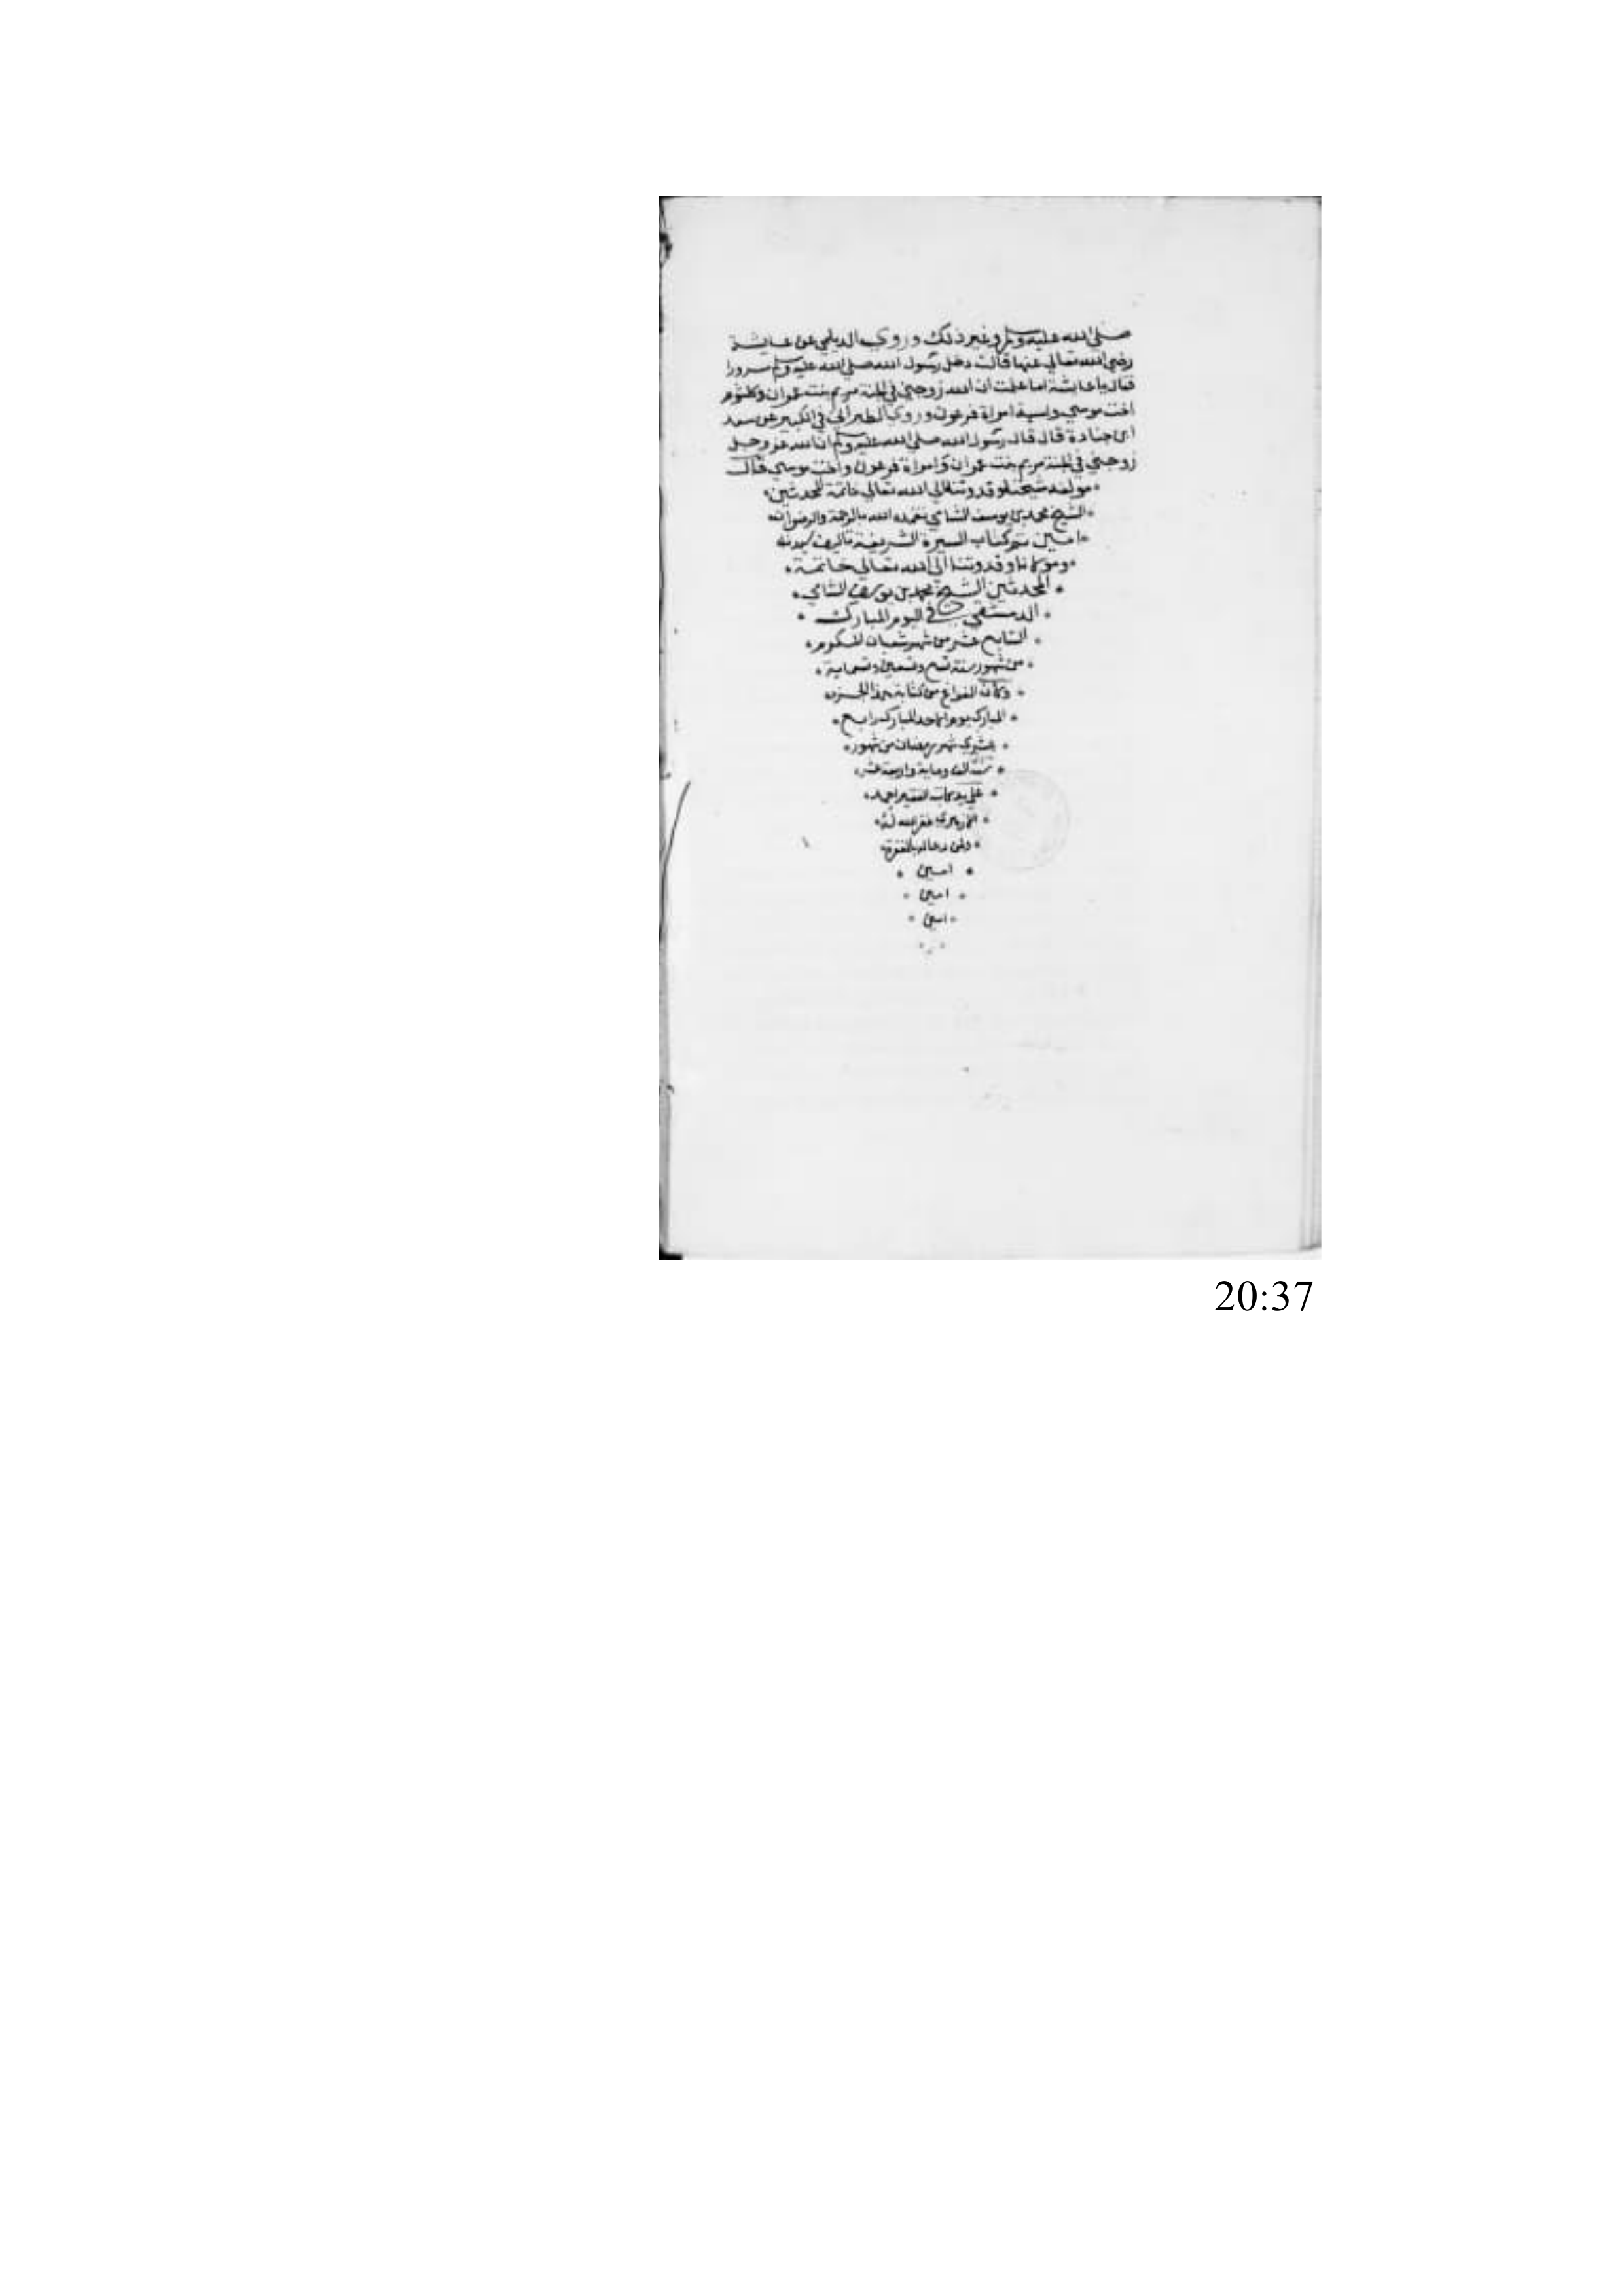 صلى الله عليه وسلم وغير ذلك وروي الديلمي عن عايشة
رضي الله تعالى عنها قالت دخل رسول الله صلى الله عليه وسلم مسرورا
فقال يا عايشة اما علمت ان الله زوجني في الجنة مريم بنت عمران وكلثوم
اخت موسي واسية امراة فرعون وروي الطبراني في الكبير عن سعد
ابن جنادة قال قال رسول الله صلى الله عليه وسلم ان الله عز وجل
زوجني في الجنة مريم بنت عمران وامراة فرعون واخت موسي قال
مولفه شيخنا وقدوتنا الي الله تعالي خاتمة المحدثين
الشيخ محمد بن يوسف الشامي تغمده الله بالرحمة والرضوان
امين تم كتاب السيرة الشريفة تاليف سيدنا
ومولانا وقدوتنا الى الله تعالي خاتمة
المحدثين الشيخ محمد بن يوسف الشامي
الدمشقي في اليوم المبارك
السابع عشر من شهر شعبان المكرم
من شهور سنة تسع وتسعين وتسعماية
وكان الفراغ من كتابة هذا الجزء
المبارك يوم الاحد المبارك رابع
عشري شهر رمضان من شهور
سنة الف وماية واربعة عشر
علي يد كاتبه الفقير احمد
غفر الله له
ولمن دعا له بالمغفرة
امين
امين
امين
20:37